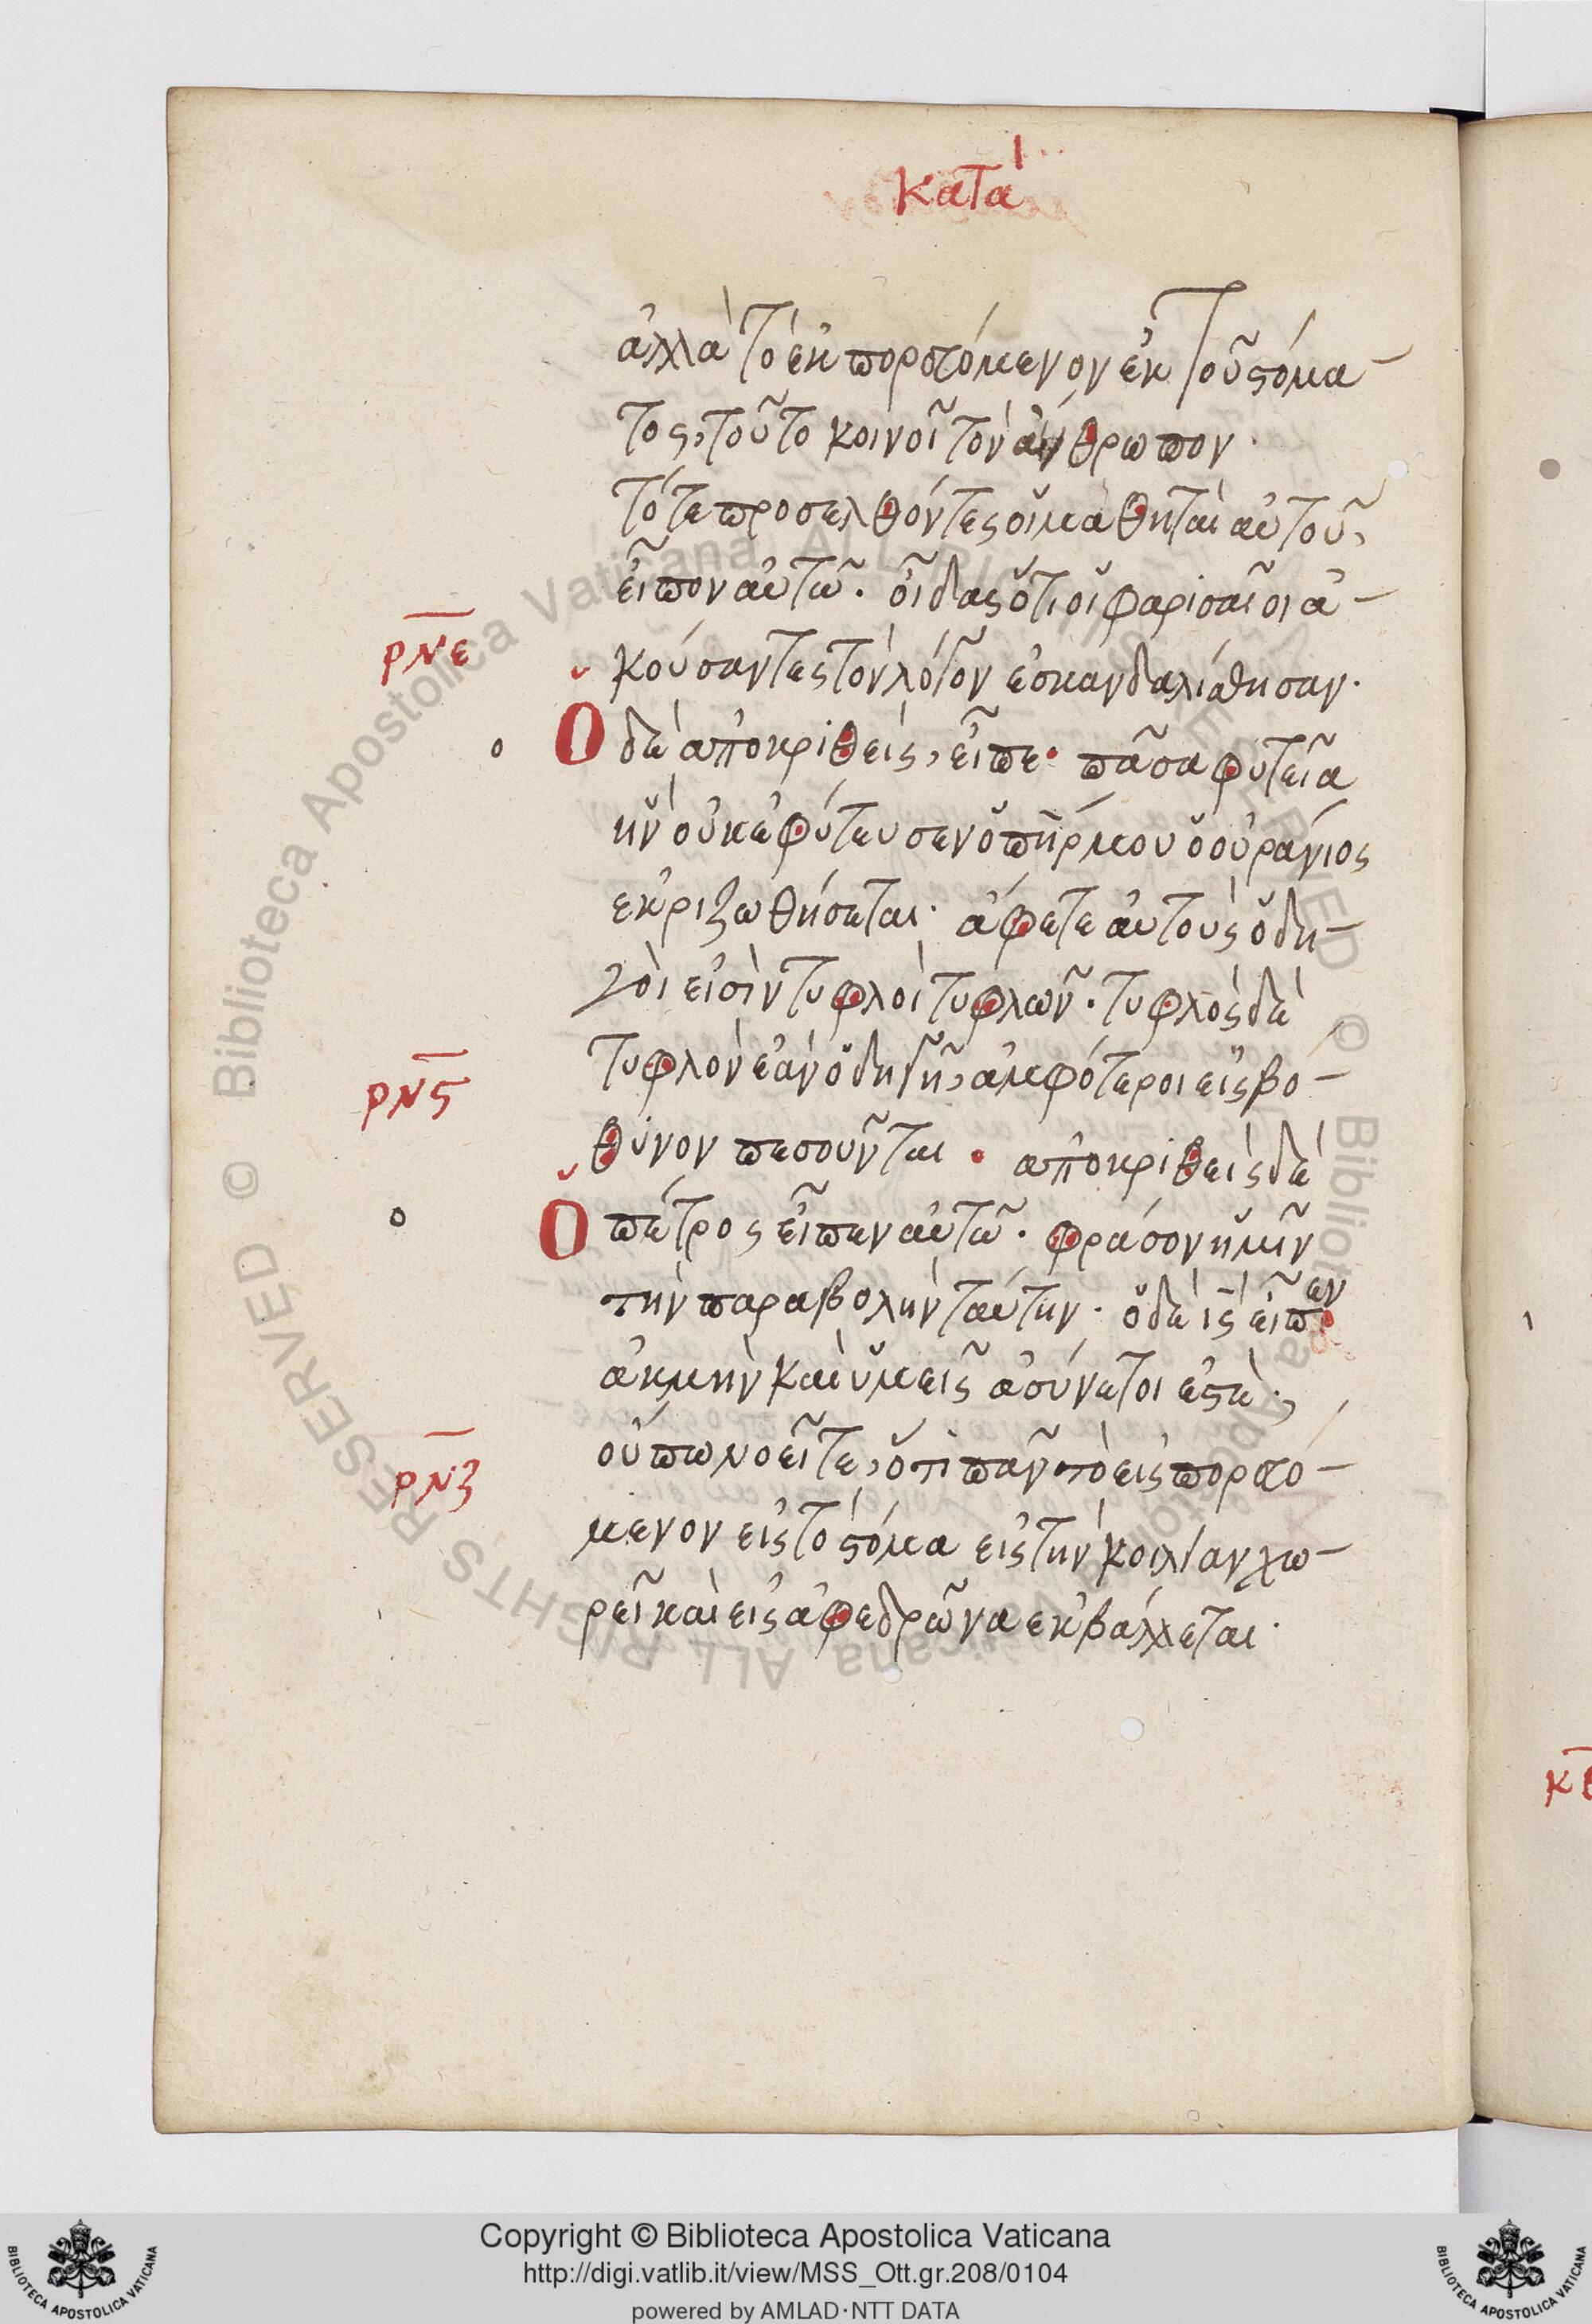 κατὰ
ἀλλὰ τὸ ἐκπορευόμενον ἐκ τοῦ στόμα-
τος, τοῦτο κοινοῖ τὸν ἄνθρωπον.
τότε προσελθόντες οἱ μαθηταὶ αὐτοῦ,
εἶπον αὐτῶ. οἶδας ὅτι οἱ φαρισαῖοι ἀ-
ρνε
κούσαντες τὸν λόγον ἐσκανδαλίσθησαν.
Ὁ δὲ ἀποκριθεὶς, εἶπε. πᾶσα φυτεῖα
ἣν οὐκ ἐφύτευσεν ὁ πηρ μου ὁ οὐράνιος
ἐκριζωθήσεται. ἄφετε αὐτοὺς ὁδη-
γοὶ εἰσὶν τυφλοὶ τυφλῶν. τυφλὸς δὲ
ρνϛ
τυφλὸν ἐὰν ὁδηγῆ, ἀμφότεροι εἰς βό-
θυνον πεσοῦνται. ἀποκριθεὶς δὲ
Ὁ πέτρος εἶπεν αὐτῶ. φράσον ἡμῖν
τὴν παραβολὴν ταύτην. ὁ δὲ ις εἶπεν
ἀκμὴν καὶ ὑμεῖς ἀσύνετοι ἐστὲ;
ρνζ
οὔπω νοεῖτε, ὅτι πᾶν τὸ εἰσπορευό-
μενον εἰς τὸ στόμα εἰς τὴν κοιλίαν χω-
ρεῖ καὶ εἰς ἀφεδρῶνα ἐκβάλλεται.
Copyright © Biblioteca Apostolica Vaticana
http://digi.vatlib.it/view/MSS_Ott.gr.208/0104
powered by AMLAD·NTT DATA